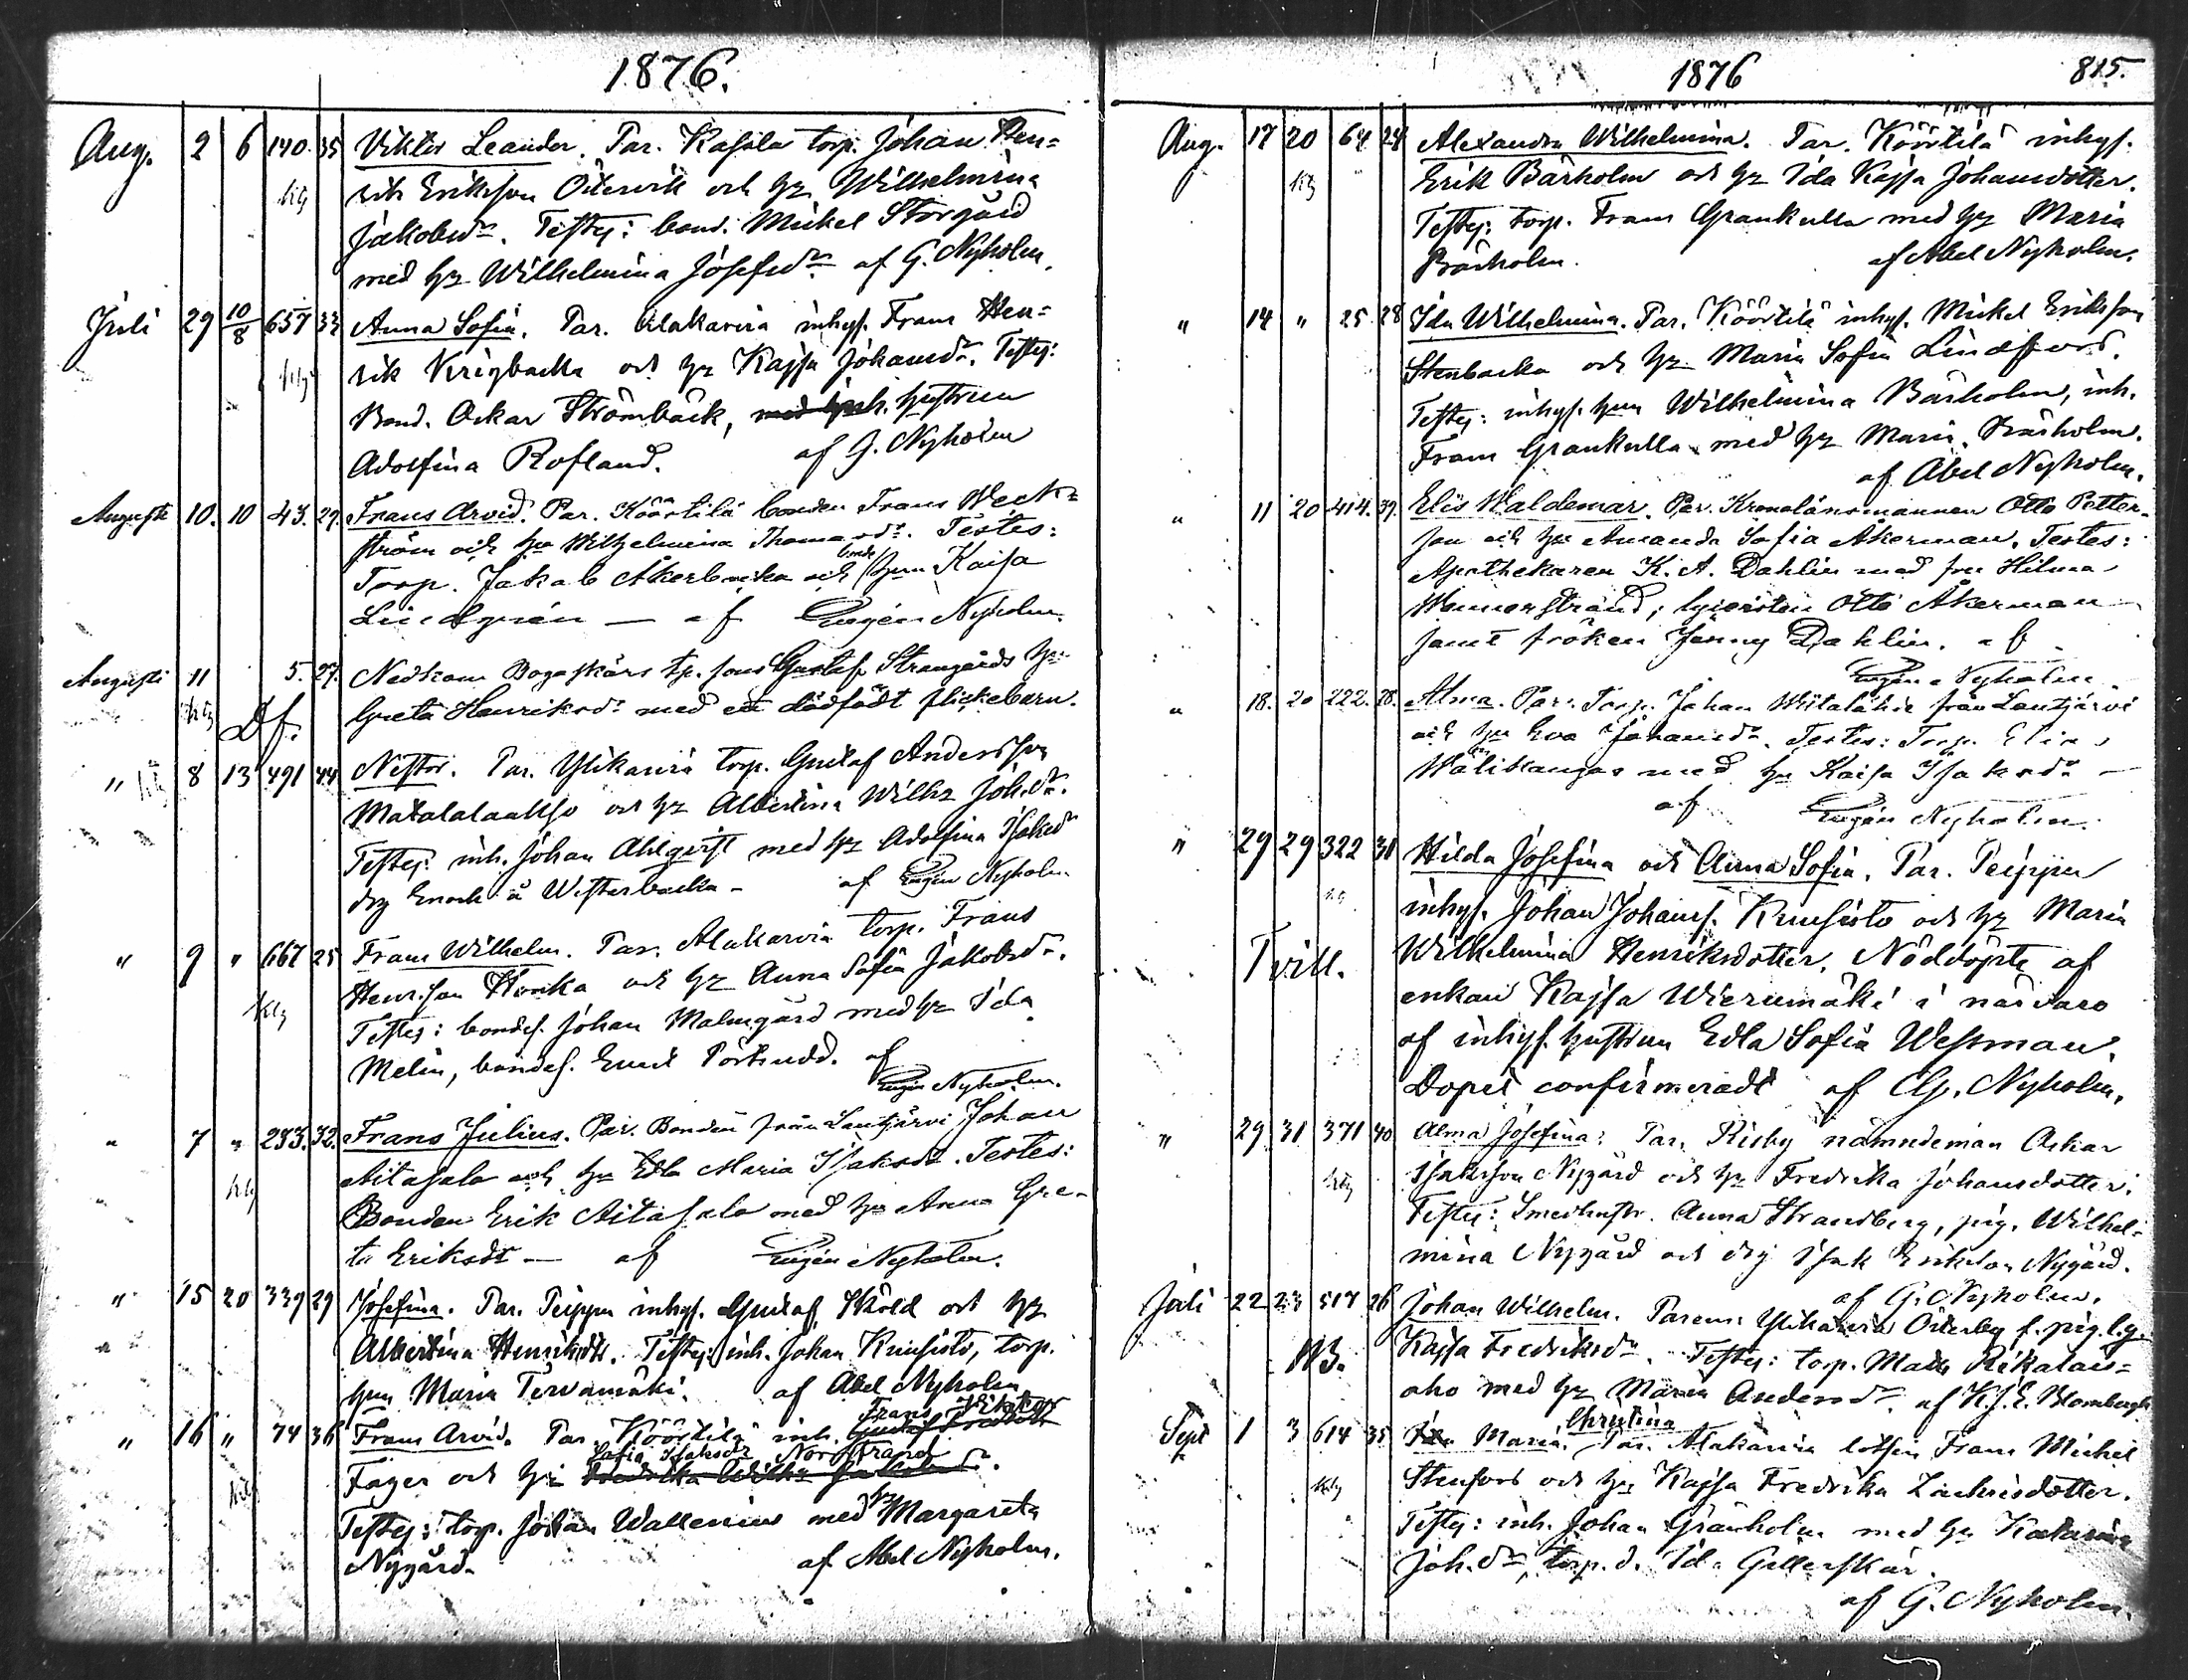 1876.
Aug. 2 6 140. 35 Viktor Leander. Par. Kasala torp. Johan Hen=
rik Eriksson Östervik och hr Wilhelmina
Jakobsdr. Testes: bond. Mickel Storgård
med hr Wilhelmina Josefsdr. af G. Nyholm.
Juli 29 10/8 657 33 Anna Sofia. Par. Alakarvia inhys. Frans Hen=
rik Krigbacka och hr Kajsa Johansdr. Testes:
Bond. Oskar Strömbäck, hustrun
Adolfina Rosland. af G. Nyholm
Augusti 10. 10 43. 29. Frans Arvid. Par. Köörtilä bonden Frans Weck=
ström och hr Wilhelmina Thomasdr. Testes:
Torp. Jakob Åkerbacka och hun Kaisa
Lindgren — af Eugén Nyholm.
Augusti 11 5. 29. Nedkom Bogaskärs tp. sons Gustaf Strangårds hr
Df. Greta Henriksdr med ett dödfödt flickebarn.
" 8 13 491 44 Nestor. Par. Ylikarvia torp. Gustaf Andersson
Matalalaakso och hr Albertina Wilh: Joh.dr.
Testes: inh. Johan Ahlqvist med hr Adolfina Isaksdr
drg Enoch å Westerbacka - af Eugén Nyholm
" 9 " 667 25 Frans Wilhelm. Par. Alakarvia torp. Frans
Henr.son Honka och hr Anna Sofia Jakobsdr.
Testes: bondes. Johan Malmgård med hr Ida
Melin, bondes. Emil Pörkudd. af
Eugén Nyholm.
" 7 " 283. 32. Frans Julius. Par. Bonden från Lautjärvi Johan
Aitasalo och hr Edla Maria Isaksdr. Testes:
Bonden Erik Aitasalo med hr Anna Gre-
ta Eriksdr — af Eugén Nyholm.
" 15 20 339 29 Josefina. Par. Peippu inhys. Gustaf Sköld och hr
Albertina Henriksdr. Testes: inh. Johan Kruusisto, torp.
hun Maria Tervamäki. af Abel Nyholm
Frans Viktor
" 16 " 74 36 Frans Arvid. Par. Köörtilä inh. Gustaf Fredrik
Sofia Isaksdr Norrstrand
Fager och hr Fredrika Wilh:
Testes: torp. Johan Wallenius med hr Margareta
Nygård. af Abel Nyholm.
1876 815.
Aug. 17 20 64 24 Alexandra Wilhelmina. Par. Köörtilä inhys.
Erik Bärholm och hr Ida Kajsa Johansdotter.
Testes: torp. Frans Grankulla med hr Maria
Bärholm. af Abel Nyholm.
" 14 " 25 28 Ida Wilhelmina. Par. Köörtilä inhys. Mickel Eriksson
Stenbacka och hr Maria Sofia Lindfors.
Testes: inhys. hun Wilhelmina Bärholm, inh.
Frans Grankulla med hr Maria Bärholm.
af Abel Nyholm.
" 11 20 414. 39. Elis Waldemar. Par. Kronolänsmannen Otto Petter-
son och hr Amanda Sofia Åkerman. Testes:
Apothekaren K. A. Dahlin med fru Hilma
Wennerstrand; Otto Åkerman
jemt fröken Jenny Dahlin. af
Eugén Nyholm
" 18. 20 222. 28. Alma. Par. Torp. Johan Wiitalähde från Lautjärvi
och hr Eva Johansdr. Testes: Torp. Elias
Wälikangas med hr Kaisa Isaksdr —
af Eugén Nyholm.
" 29 29 322 31 Hilda Josefina och Anna Sofia. Par. Peippu
inhys. Johan Johanss. Kruusisto och hr Maria
Tvill. Wilhelmina Henriksdotter. Nöddöpte af
enkan Kajsa Wierumäki i närvaro
af inhys. hustrun Edla Sofia Wessman.
Dopet confirmeradt af G. Nyholm.
" 29 31 371 40 Alma Josefina: Par. Risby nämndeman Oskar
Isaksson Nygård och hr Fredrika Johansdotter.
Testes: Smedhustr. Anna Strandberg, pig. Wilhel-
mina Nygård och drg Isak Erikson Nygård.
af G. Nyholm.
Juli 22 23 517 26 Johan Wilhelm. Parens: Ylikarvia Österby f. pig. l.g.
NB. Kajsa Fredriksdr. Testes: torp. Mats Rikalais=
aho med hr Maria Andersdr. af K.J.E. Blombergh
Christina
Sept 1 3 614 35 Maria. Par. Alakarvia lotsen Frans Mickel
Stenfors och hr Kajsa Fredrika Zachrisdotter.
Testes: inh. Johan Granholm med hr Katarina
Joh.dr, torp.d. Ida Gillerskär.
af G. Nyholm.